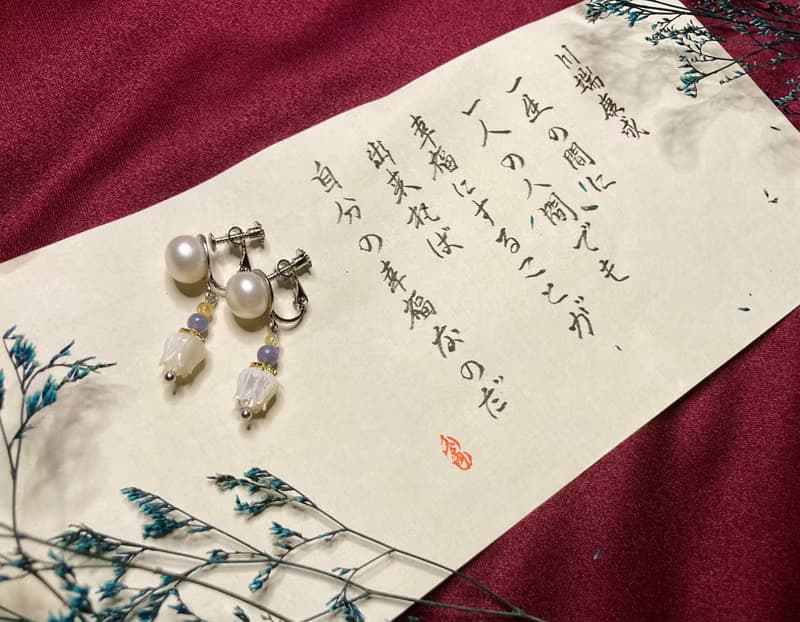 川端康成
一生の間に、でも
一人の人間
幸福にすることが
出来れば
自分の幸福なのだ